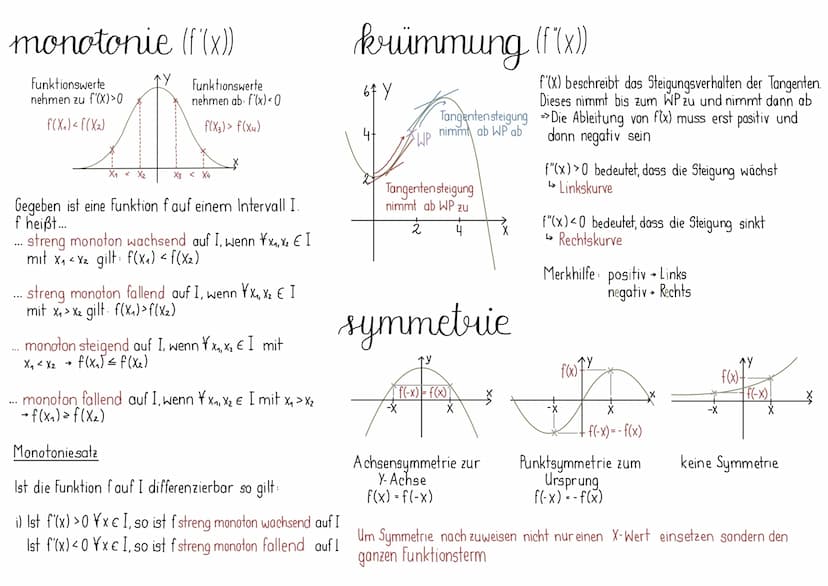 monotonie (f'(x))
Funktionswerte
nehmen zu f'(x)>0
f(x₁)<f(x₂)
Funktionswerte
nehmen ab f'(x)<0
f(x₃)>f(x₄)
y
x
x₁ < x₂ x₃ < x₄
Gegeben ist eine Funktion f auf einem Intervall I.
f heißt...
... streng monoton wachsend auf I, wenn ∀x₁,x₂ ∈ I
mit x₁ < x₂ gilt: f(x₁) < f(x₂)
... streng monoton fallend auf I, wenn ∀x₁, x₂ ∈ I
mit x₁ > x₂ gilt: f(x₁)>f(x₂)
... monoton steigend auf I, wenn ∀x₁,x₂ ∈ I mit
x₁ < x₂ → f(x₁) ≤ f(x₂)
... monoton fallend auf I, wenn ∀x₁,x₂ ∈ I mit x₁ > x₂
→ f(x₁) ≥ f(x₂)
Monotoniesatz
Ist die Funktion f auf I differenzierbar so gilt:
i) Ist f'(x) >0 ∀x ∈ I, so ist f streng monoton wachsend auf I
Ist f'(x) <0 ∀x ∈ I, so ist f streng monoton fallend auf I
krümmung (f"(x))
6 y
4
2
2 4 x
Tangentensteigung
nimmt ab WP ab
WP
Tangentensteigung
nimmt ab WP zu
f'(x) beschreibt das Steigungsverhalten der Tangenten.
Dieses nimmt bis zum WP zu und nimmt dann ab
⇒ Die Ableitung von f'(x) muss erst positiv und
dann negativ sein
f"(x) >0 bedeutet, dass die Steigung wächst
↳ Linkskurve
f"(x) <0 bedeutet, dass die Steigung sinkt
↳ Rechtskurve
Merkhilfe: positiv → Links
negativ → Rechts
symmetrie
y
f(-x) = f(x)
x
-x x
Achsensymmetrie zur
Y-Achse
f(x) = f(-x)
f(x) y
x
-x x
f(-x) = -f(x)
Punktsymmetrie zum
Ursprung
f(-x) = -f(x)
y
f(x)
f(-x)
x
-x x
keine Symmetrie
Um Symmetrie nachzuweisen nicht nur einen X-Wert einsetzen sondern den
ganzen Funktionsterm